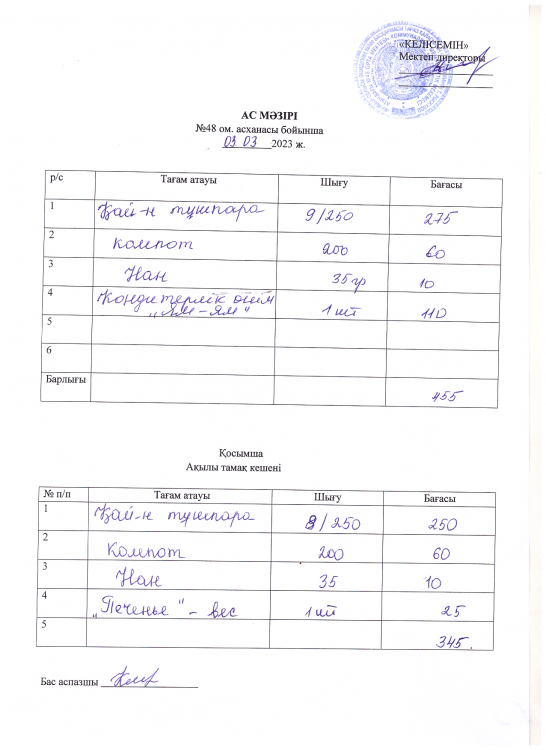 «КЕЛІСЕМІН»
Мектеп директоры
АС МӘЗІРІ
№48 ом. асханасы бойынша
03 03 2023 ж.
р/с Тағам атауы Шығу Бағасы
1 Қай-н тұшпара 9/250 275
2 компот 200 60
3 Нан 35 гр 10
4 Кондитерлік өнім „Ям-Ям" 1 шт 110
5
6
Барлығы 455
Қосымша
Ақылы тамақ кешені
№ п/п Тағам атауы Шығу Бағасы
1 Қай-н тұшпара 8/250 250
2 Компот 200 60
3 Нан 35 10
4 „Печенье" - вес 1 шт 25
5 345.
Бас аспазшы